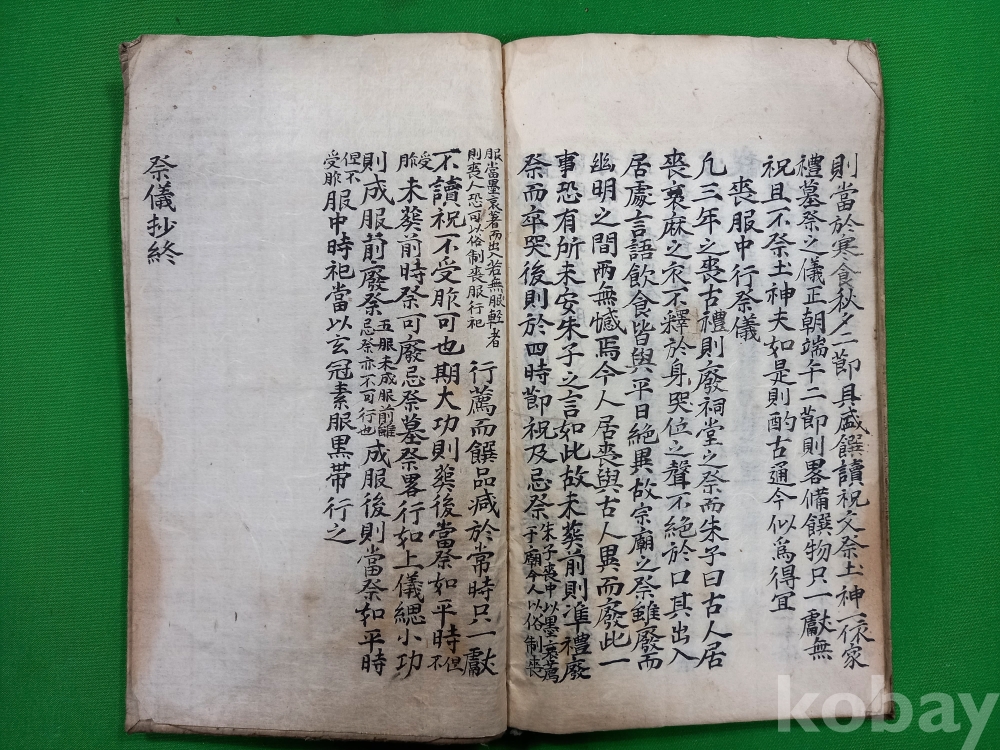 則當於寒食秋夕二節具盛饌讀祝文祭土神一依家
禮墓祭之儀正朝端午二節則畧備饌物只一獻無
祝且不祭土神夫如是則酌古通今似爲得宜
喪服中行祭儀
凡三年之喪古禮則廢祠堂之祭而朱子曰古人居
喪衰麻之衣不釋於身哭泣之聲不絕於口其出入
居處言語飲食皆與平日絕異故宗廟之祭雖廢而
幽明之間兩無憾焉今人居喪與古人異而廢此一
事恐有所未安朱子之言如此故未葬前則準禮廢
祭而卒哭後則於四時節祝及忌祭朱子喪中以墨衰薦
于廟今人以俗制喪
服當墨衰著而出入若無服輕者
則喪人恐可以俗制喪服行祀
行薦而饌品减於常時只一獻
不讀祝不受胙可也期大功則葬後當祭如平時但不
受胙未葬前時祭可廢忌祭墓祭畧行如上儀緦小功
則成服前廢祭五服未成服前雖
忌祭亦不可行也成服後則當祭如平時
但不
受胙服中時祀當以玄冠素服黑帶行之
祭儀抄終
kobay